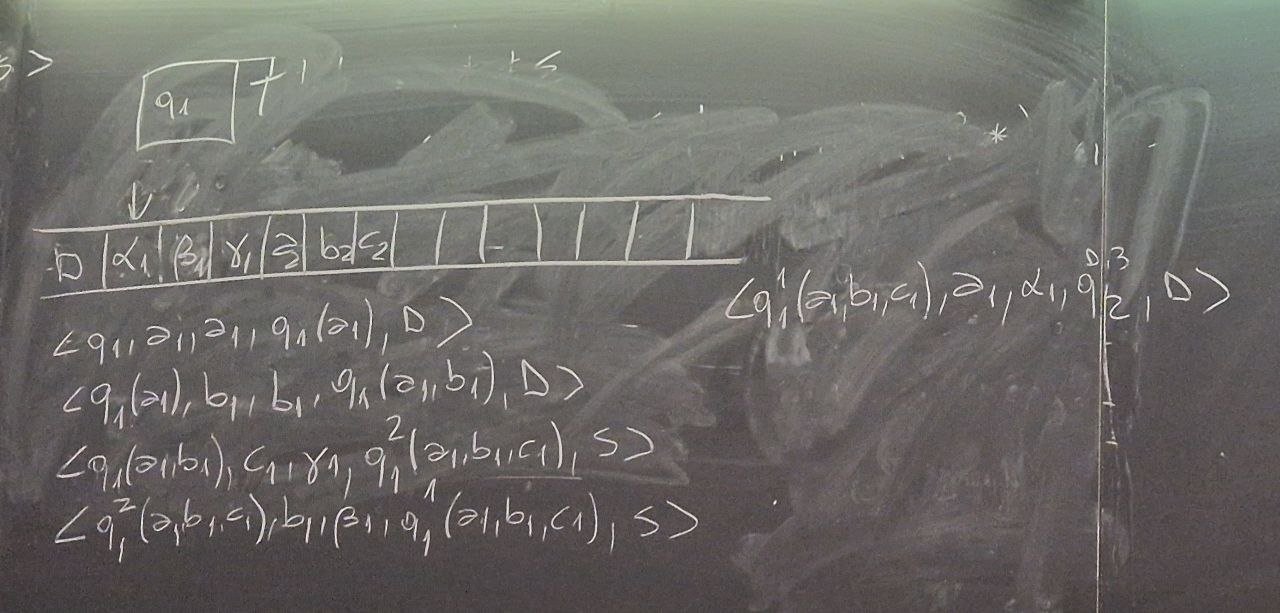 >
q₁ T'
D α₁ β₁ γ₁ a₂ b₂ c₂ -
<q₁, a₁, a₁, q₁(a₁), D>
<q₁(a₁), b₁, b₁, q₁(a₁, b₁), D>
<q₁(a₁, b₁), c₁, γ₁, q₁²(a₁, b₁, c₁), S>
<q₁²(a₁, b₁, c₁), b₁, β₁, q₁¹(a₁, b₁, c₁), S>
<q₁¹(a₁, b₁, c₁), a₁, α₁, q₂ᴰ'³, D>